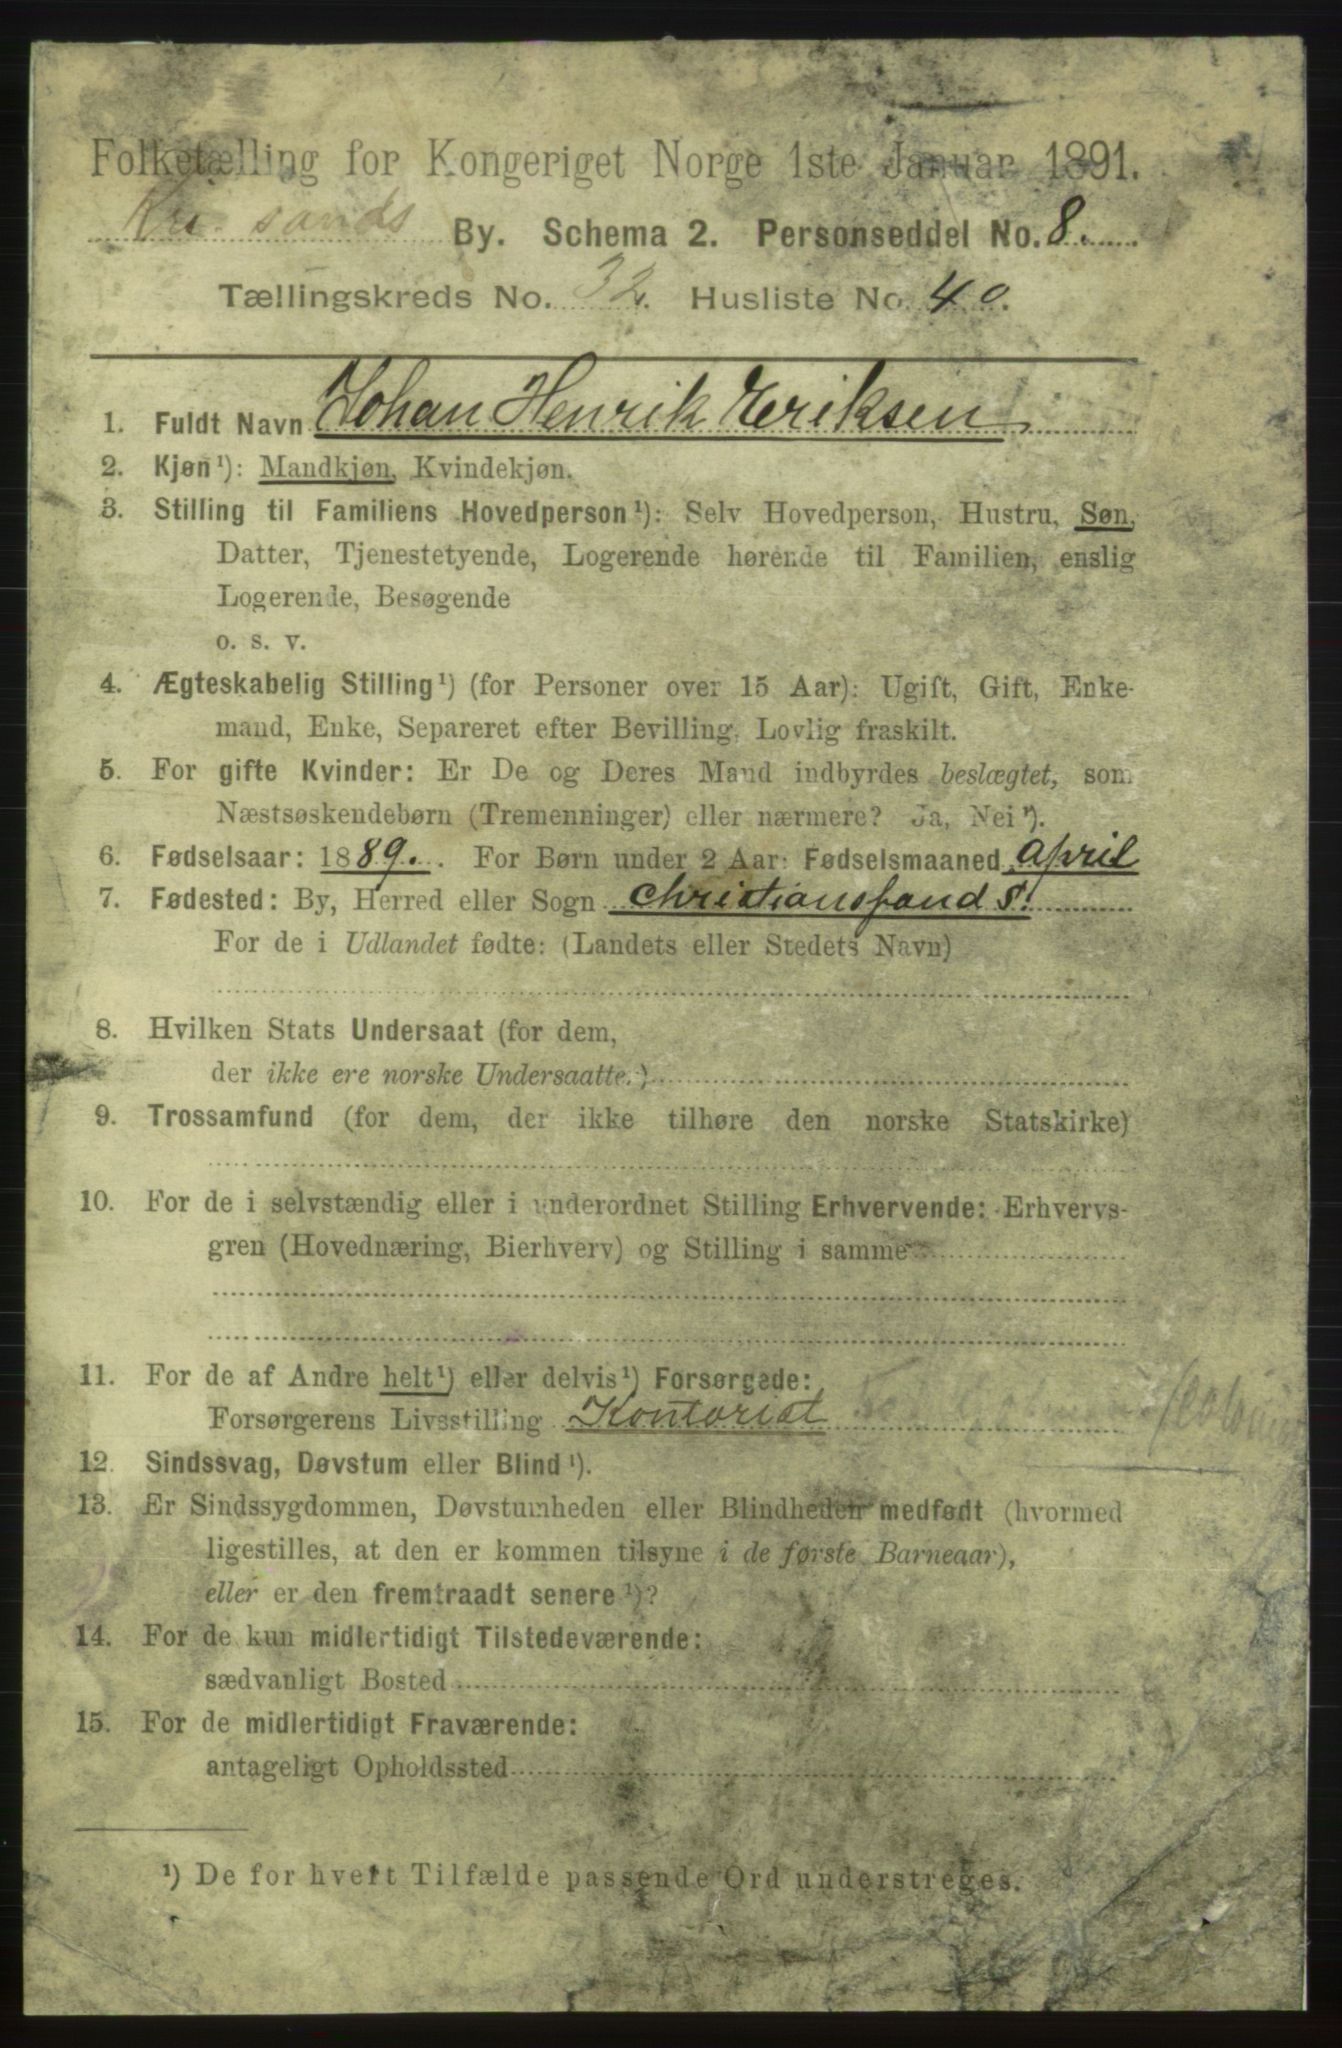 Folketælling for Kongeriget Norge 1ste Januar 1891.
Kri. sands By. Schema 2. Personseddel No. 8.
Tællingskreds No. 32. Husliste No. 40.
1. Fuldt Navn Johan Henrik Eriksen
2. Kjøn¹): Mandkjøn, Kvindekjøn.
3. Stilling til Familiens Hovedperson¹): Selv Hovedperson, Hustru, Søn,
Datter, Tjenestetyende, Logerende hørende til Familien, enslig
Logerende, Besøgende
o. s. v.
4. Ægteskabelig Stilling¹) (for Personer over 15 Aar): Ugift, Gift, Enke-
mand, Enke, Separeret efter Bevilling, Lovlig fraskilt.
5. For gifte Kvinder: Er De og Deres Mand indbyrdes beslægtet, som
Næstsøskendebørn (Tremenninger) eller nærmere? Ja, Nei¹).
6. Fødselsaar: 1889. For Børn under 2 Aar: Fødselsmaaned April
7. Fødested: By, Herred eller Sogn Christianssand S.
For de i Udlandet fødte: (Landets eller Stedets Navn)
8. Hvilken Stats Undersaat (for dem,
der ikke ere norske Undersaatte.)
9. Trossamfund (for dem, der ikke tilhøre den norske Statskirke)
10. For de i selvstændig eller i underordnet Stilling Erhvervende: Erhvervs-
gren (Hovednæring, Bierhverv) og Stilling i samme
11. For de af Andre helt¹) eller delvis¹) Forsørgede:
Forsørgerens Livsstilling Kontorist
12. Sindssvag, Døvstum eller Blind¹).
13. Er Sindssygdommen, Døvstumheden eller Blindheden medfødt (hvormed
ligestilles, at den er kommen tilsyne i de første Barneaar),
eller er den fremtraadt senere¹)?
14. For de kun midlertidigt Tilstedeværende:
sædvanligt Bosted
15. For de midlertidigt Fraværende:
antageligt Opholdssted
¹) De for hvert Tilfælde passende Ord understreges.